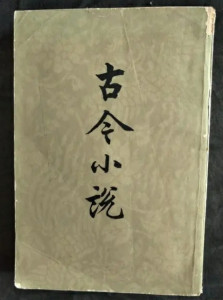 古今小說